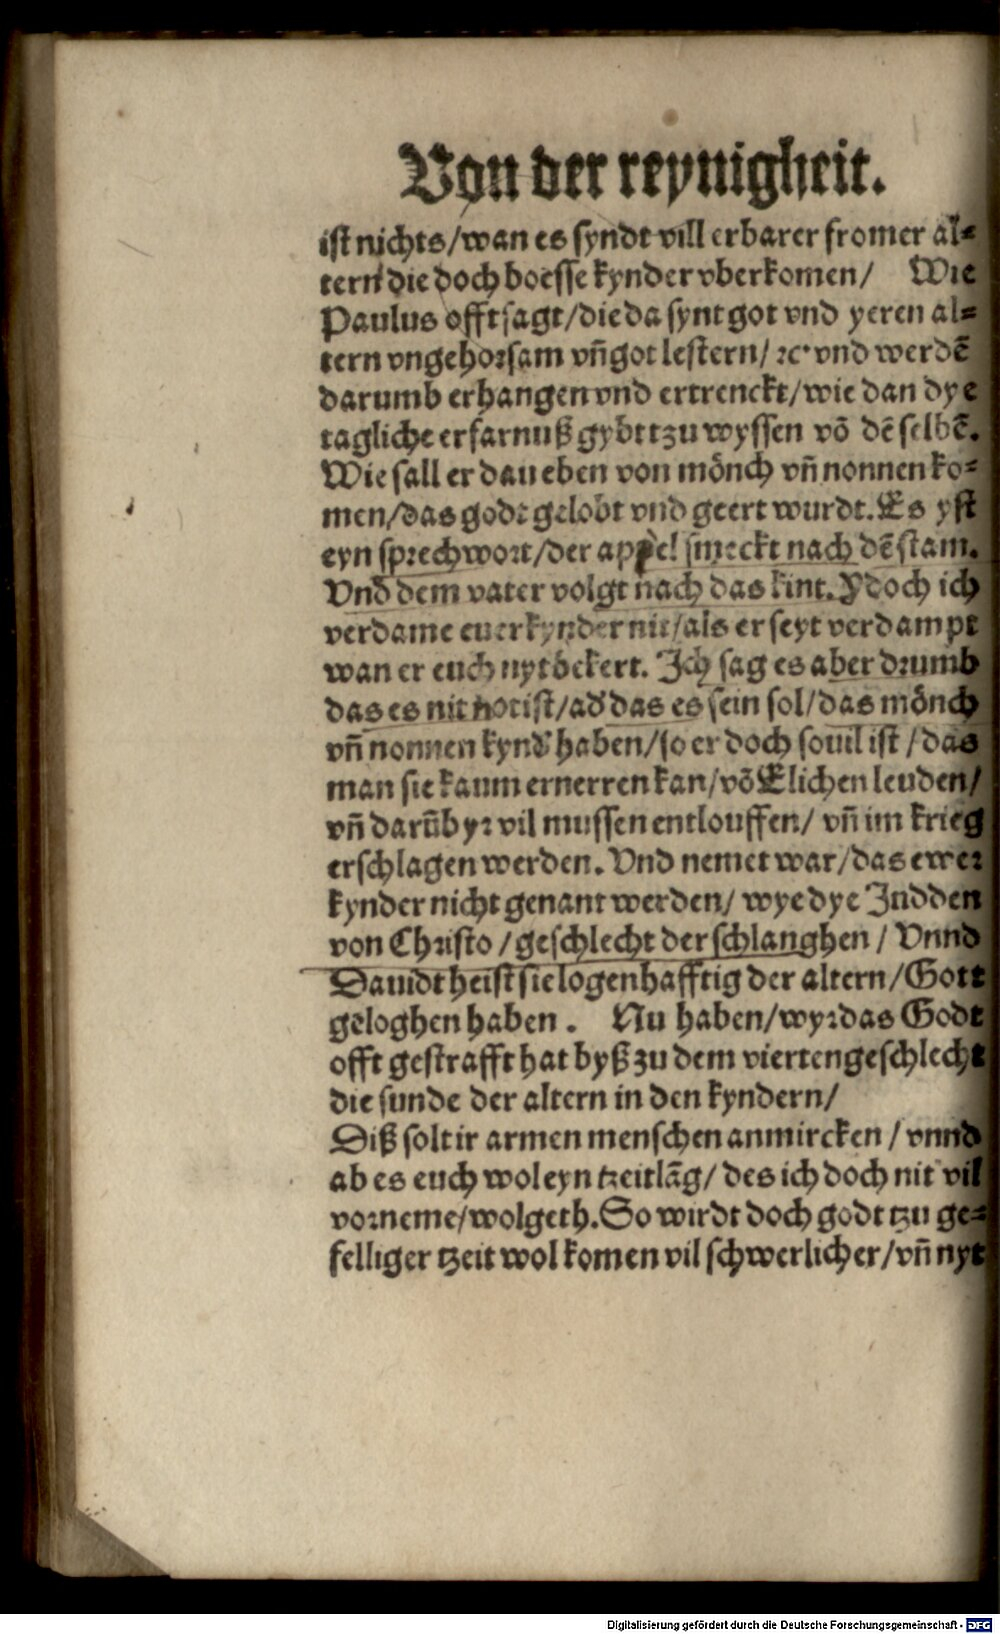 Von der reynigheit.
ist nichts/wan es syndt vill erbarer fromer al⸗
tern die doch boesse kynder vberkomen/ Wie
Paulus offt sagt/die da synt got vnd yeren al⸗
tern vngehorsam vñ got lestern/ ꝛc· vnd werdē
darumb erhangen vnd ertrenckt/wie dan dye
tagliche erfarnuß gybt tzu wyssen vō dē selbē.
Wie sall er dau eben von mönch vñ nonnen ko⸗
men/das gode gelobt vnd geert wurdt. Es yst
eyn sprechwort/der appel smeckt nach dē stam.
Vnd dem vater volgt nach das kint. Ydoch ich
verdame euer kynder nit/als er seyt verdampt
wan er euch nyt bekert. Ich sag es aber drumb
das es nit not ist/ad das es sein sol/das mönch
vñ nonnen kynd haben/so er doch souil ist/das
man sie kaum ernerren kan/vō Elichen leuden/
vñ darūb yr vil mussen entlouffen/ vñ im krieg
erschlagen werden. Vnd nemet war/das ewer
kynder nicht genant werden/ wye dye Judden
von Christo/geschlecht der schlanghen/ Vnnd
Dauidt heist sie logenhafftig der altern/Gott
geloghen haben. Nu haben/wyr das Godt
offt gestrafft hat byß zu dem vierten geschlecht
die sunde der altern in den kyndern/
Diß solt ir armen menschen anmircken/ vnnd
ab es euch wol eyn tzeitlāg/ des ich doch nit vil
vorneme/wolgeth. So wirdt doch godt tzu ge⸗
felliger tzeit wol komen vil schwerlicher/vñ nyt
Digitalisierung gefördert durch die Deutsche Forschungsgemeinschaft - DFG